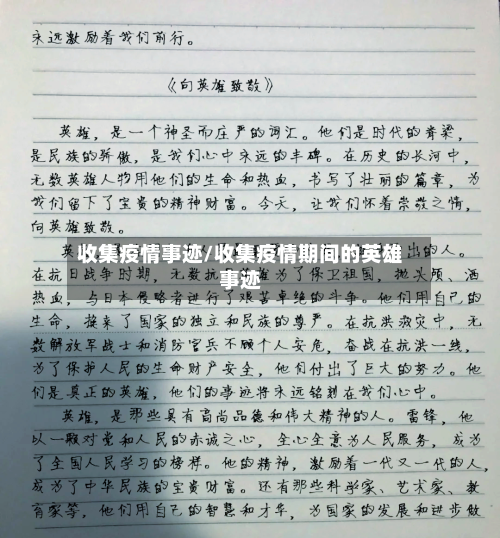 永远激励着我们前行。
《向英雄致敬》
英雄，是一个神圣而庄严的词汇。他们是时代的脊梁，
是民族的骄傲，是我们心中永远的丰碑。在历史的长河中，
无数英雄人物用他们的生命和热血，书写了壮丽的篇章，为
我们留下了宝贵的精神财富。今天，让我们怀着崇敬之情，
向英雄致敬。
收集疫情事迹/收集疫情期间的英雄
事迹
英 出的人。
在抗日战争时期，无数抗 英雄为了保卫祖国，抛头颅、洒
热血，与日本侵略者进行了艰苦卓绝的斗争。他们用自己的
生命，换来了国家的独立和民族的尊严。在抗洪救灾中，无
数解放军战士和消防官兵不顾个人安危，奋战在抗洪一线，
为了保护人民的生命财产安全，他们付出了巨大的努力。他
们是真正的英雄，他们的事迹将永远铭刻在我们心中。
英雄，是那些具有高尚品德和伟大精神的人。雷锋，他
以一颗对党和人民的赤诚之心，全心全意为人民服务，成为
了全国人民学习的榜样。他的精神，激励着一代又一代的人，
成为了中华民族的宝贵财富。还有那些科学家、艺术家、教
育家等，他们用自己的智慧和才华，为国家的发展和进步做